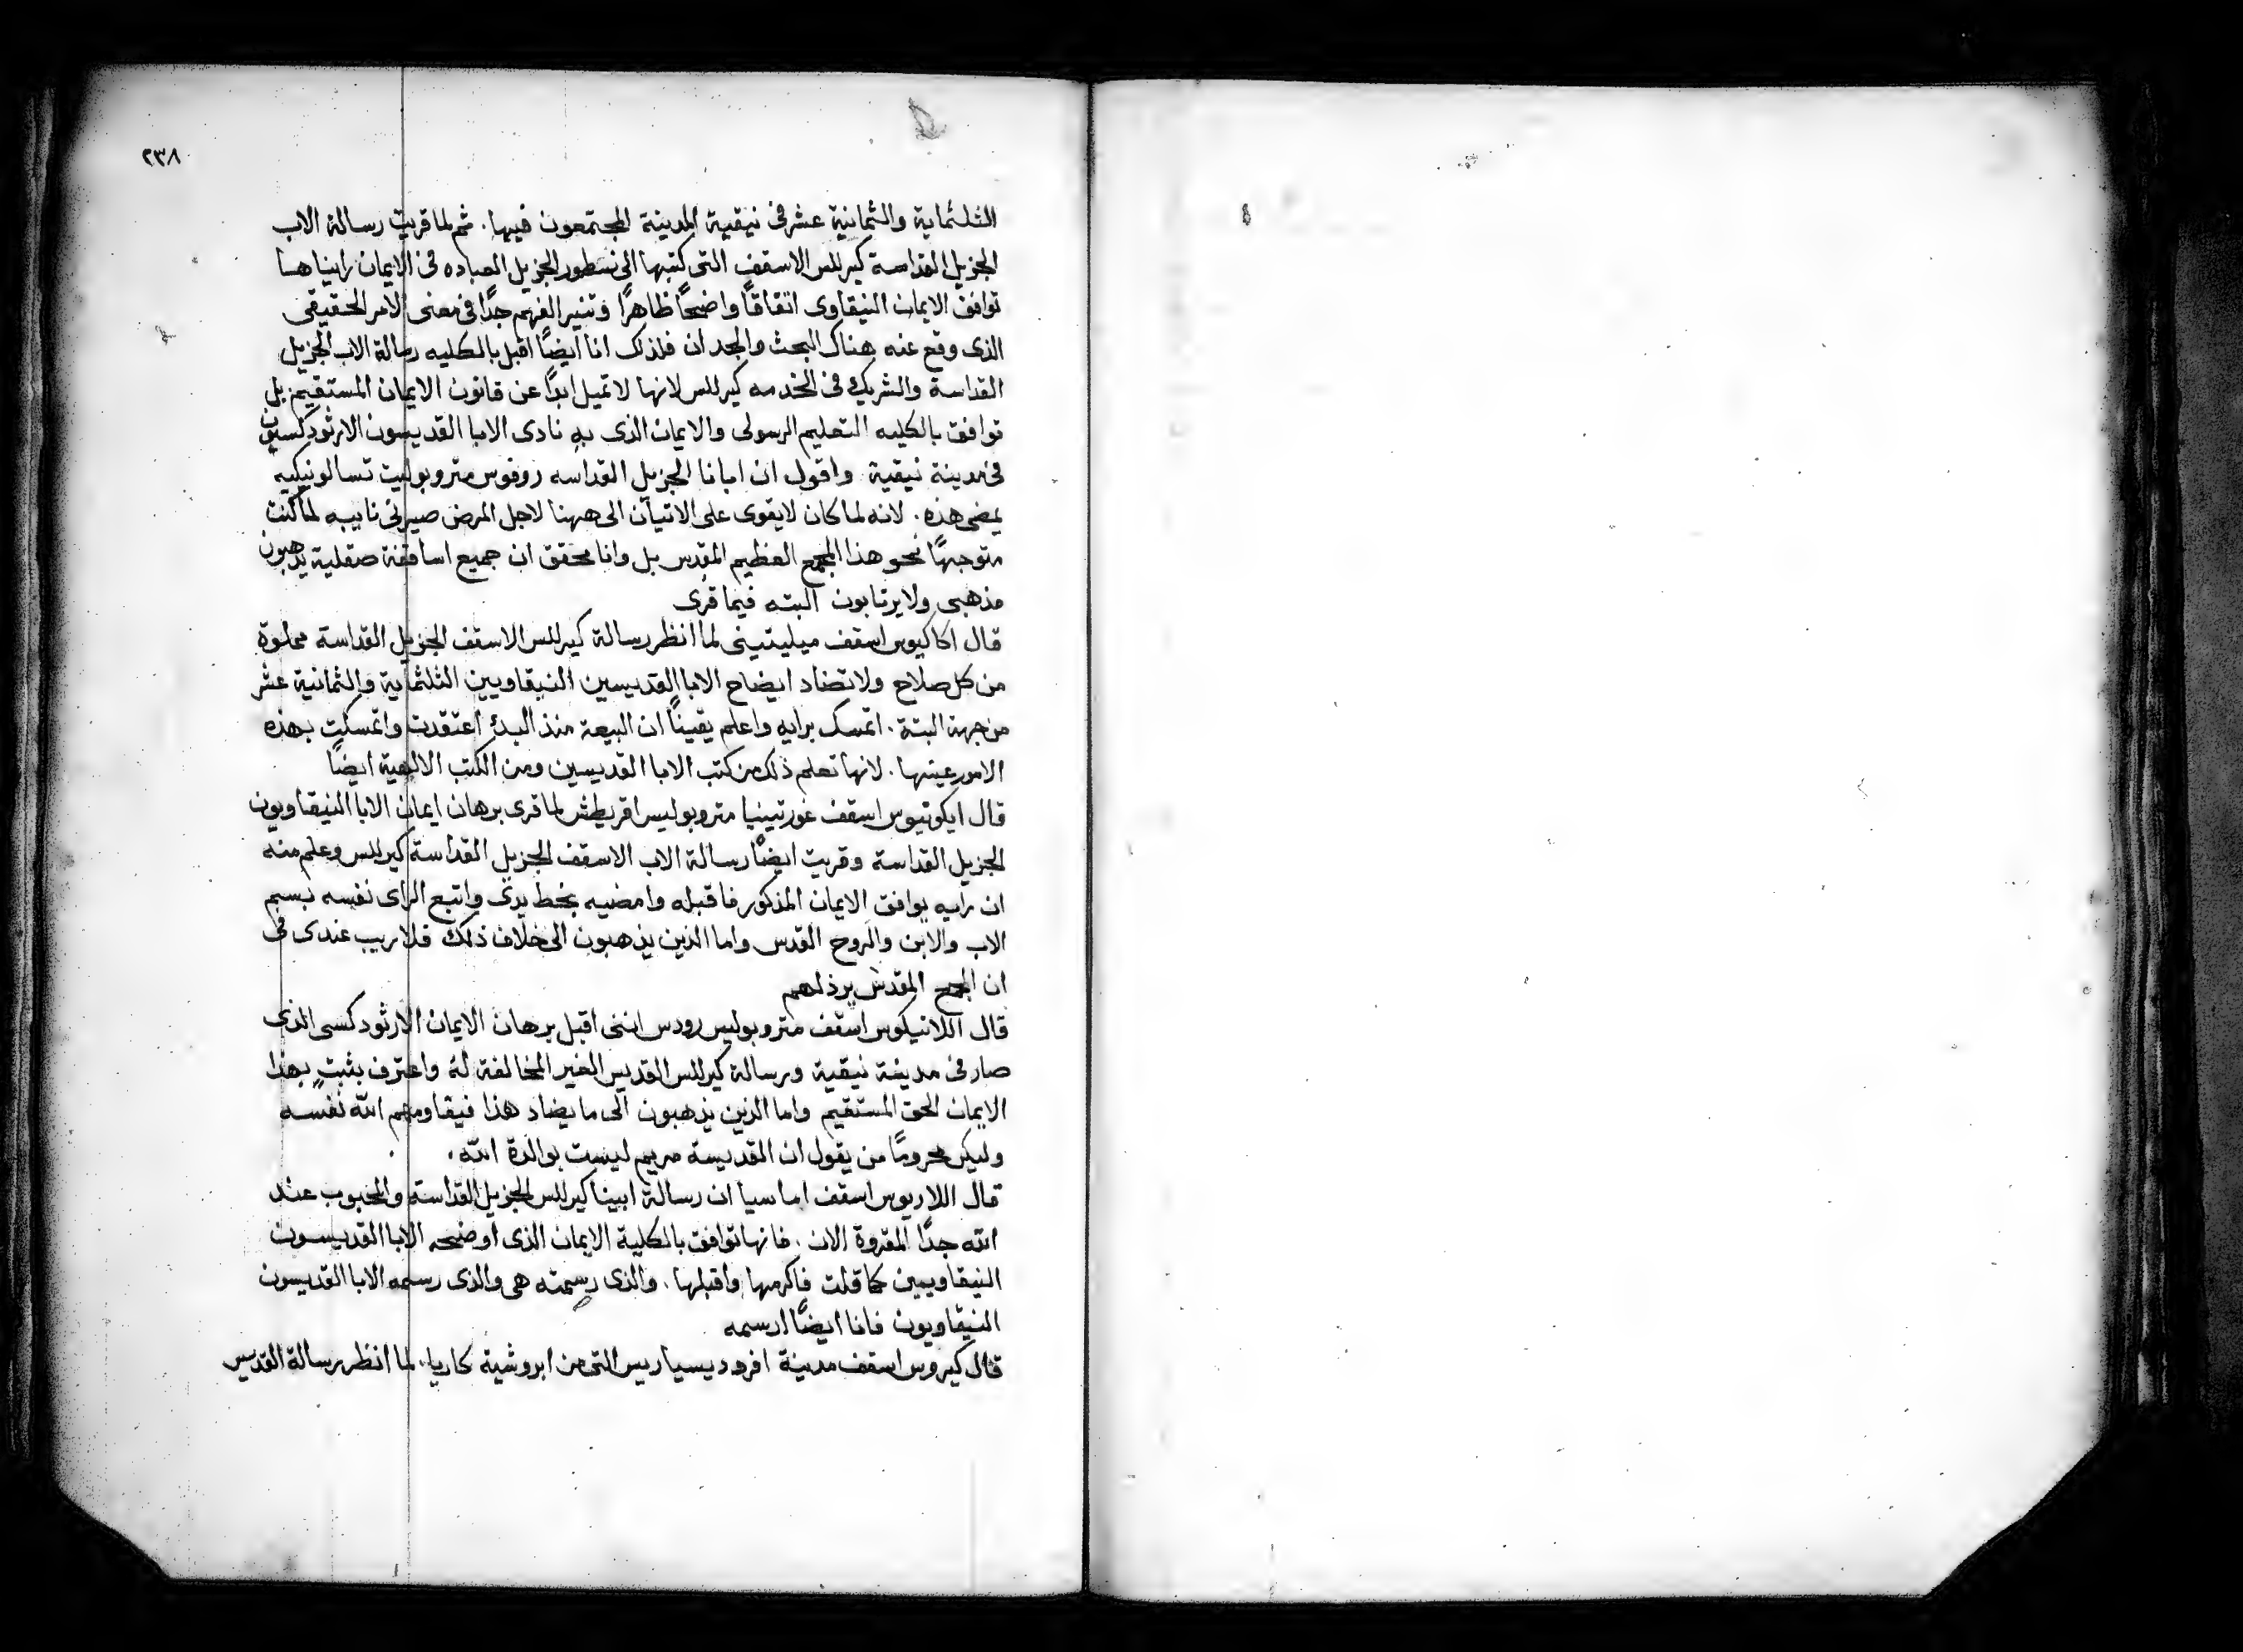 ٢٣٨
الثلثماية والثمانية عشر فى نيقية المدينة المجتمعون فيها. ثم لما قريت رسالة الاب
الجزيل القداسة كيرللس الاسقف التى كتبها الى نسطور الجزيل العباده فى الايمان راينا هنا
توافق الايمان النيقاوى اتفاقاً واضحاً ظاهرًا وتنير الفهم جدًا فى معنى الامر الحقيقى
الذى وقع عنه هناك البحث والجدان فلذلك انا ايضاً اقبل بالكليه رسالة الاب الجزيل
القداسة والشريك فى الخدمه كيرللس لانها لا تميل ابدًا عن قانون الايمان المستقيم بل
توافق بالكليه التعليم الرسولى والايمان الذى به نادى الابا القديسون الارثودكسيون
فى مدينة نيقية واقول ان ابانا الجزيل القداسه روفوس متروبوليت تسالونيكيه
يمضى هذه. لانه لما كان لا يقوى على الاتيان الى ههنا لاجل المرض صيرنى نايبه لما كنت
متوجهًا نحو هذا المجمع العظيم المقدس بل وانا محقق ان جميع اساقفة صقلية يذهبون
مذهبى ولا يرتابون البته فيما قرى
قال اكاكيوس اسقف ميليتينى لما انظر رسالة كيرللس الاسقف الجزيل القداسة مملوة
من كل صلاح ولا تضاد ايضاح الابا القديسين النيقاويين الثلثماية والثمانية عشر
من جهة البتة. اتمسك برايه واعلم يقيناً ان البيعة منذ البدء اعتقدت واتمسكت بهذه
الامور عينها. لانها تعلم ذلك من كتب الابا القديسين ومن الكتب الالهية ايضاً
قال ايكونيوس اسقف غورتينيا متروبوليس اقريطش لما قرى برهان ايمان الابا النيقاويون
الجزيل القداسة وقريت ايضاً رسالة الاب الاسقف الجزيل القداسة كيرللس وعلم منه
ان رايه يوافق الايمان المذكور فاقبله وامضيه بخط يدى واتبع الراى نفسه بسم
الاب والابن والروح القدس واما الذين يذهبون الى خلاف ذلك فلا ريب عندى فى
ان المجمع المقدس يرذلهم
قال اللانيكوس اسقف متروبوليس رودس اننى اقبل برهان الايمان الارثودكسى الذى
صار فى مدينة نيقية ورسالة كيرللس القديس الغير المخالفة له واعترف بثبتٍ بهذا
الايمان الحق المستقيم واما الذين يذهبون الى ما يضاد هذا فيقاومهم الله نفسه
وليكن محرومًا من يقول ان القديسة مريم ليست بوالدة الله.
قال اللاريوس اسقف اماسيا ان رسالة ابينا كيرللس الجزيل القداسة والمحبوب عند
الله جدًا المقروة الان. فانها توافق بالكلية الايمان الذى اوضحه الابا القديسون
النيقاويين كما قلت فاكرمها واقبلها. والذى رسمته هى والذى رسمه الابا القديسون
النيقاويون فانا ايضًا ارسمه
قال كيروس اسقف مدينة افروديسياريس التى من ابروشية كاريا. لما انظر رسالة القديس